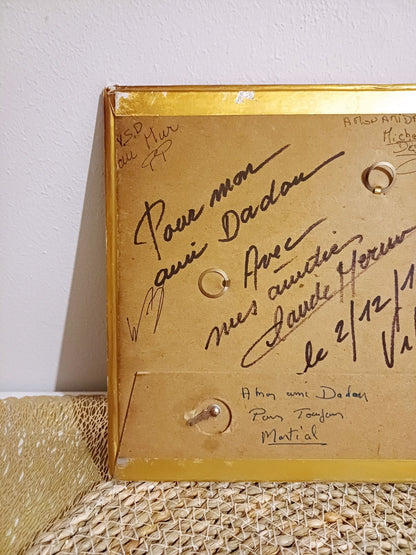 V.S.D
au Mur
A MON AMI DA
Miche
Pour mon
ami Dadou
Avec
mes amitiés
Claude
le 2/12/1
A mon ami Dadou
Pour Toujours
Martial